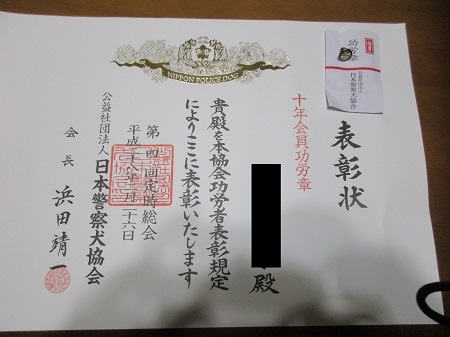 NIPPON POLICE DOG
表彰状
十年会員功労章
殿
貴殿を本協会功労者表彰規定
によりここに表彰いたします
第四回定時総会
平成二十八年二月二十六日
公益社団法人日本警察犬協会
会長 浜田靖一
功労章
公益社団法人
日本警察犬協会